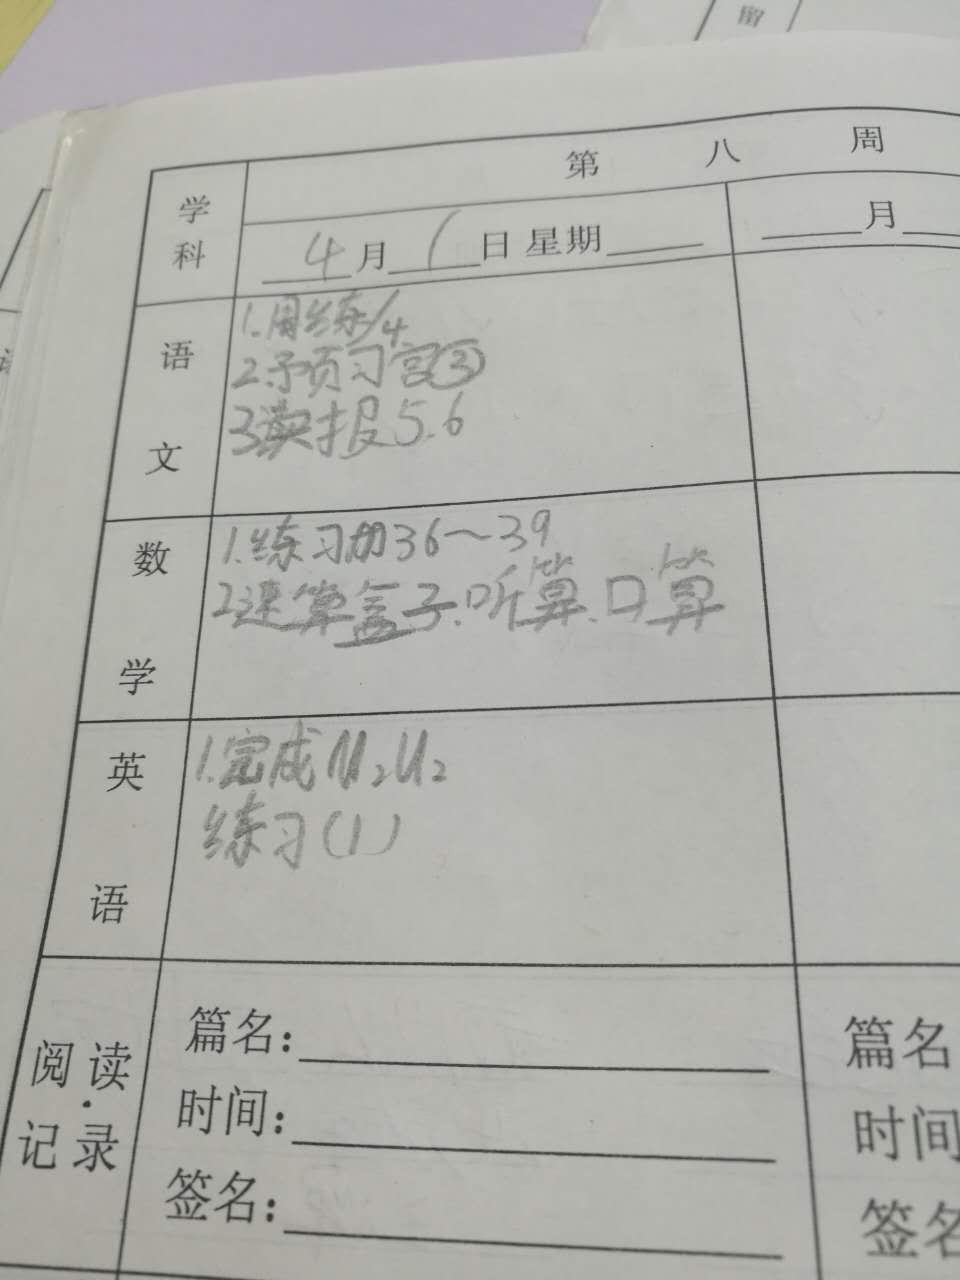 留
第 八 周
学科
4月1日 星期____
____月____
语文
1.周练/4
2.预习宫③
3.读报5.6
数学
1.练习册36~39
2.速算盒子.听算.口算
英语
1.完成M2U2
练习(1)
阅读记录
篇名:
时间:
签名:
篇名
时间
签名